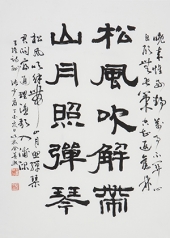 晚年惟好靜萬事不關心
自顧無長策空知返舊林
松風吹解帶
山月照彈琴
松風吹解帶山月照彈琴
君問窮通理漁歌入浦深
王維詩